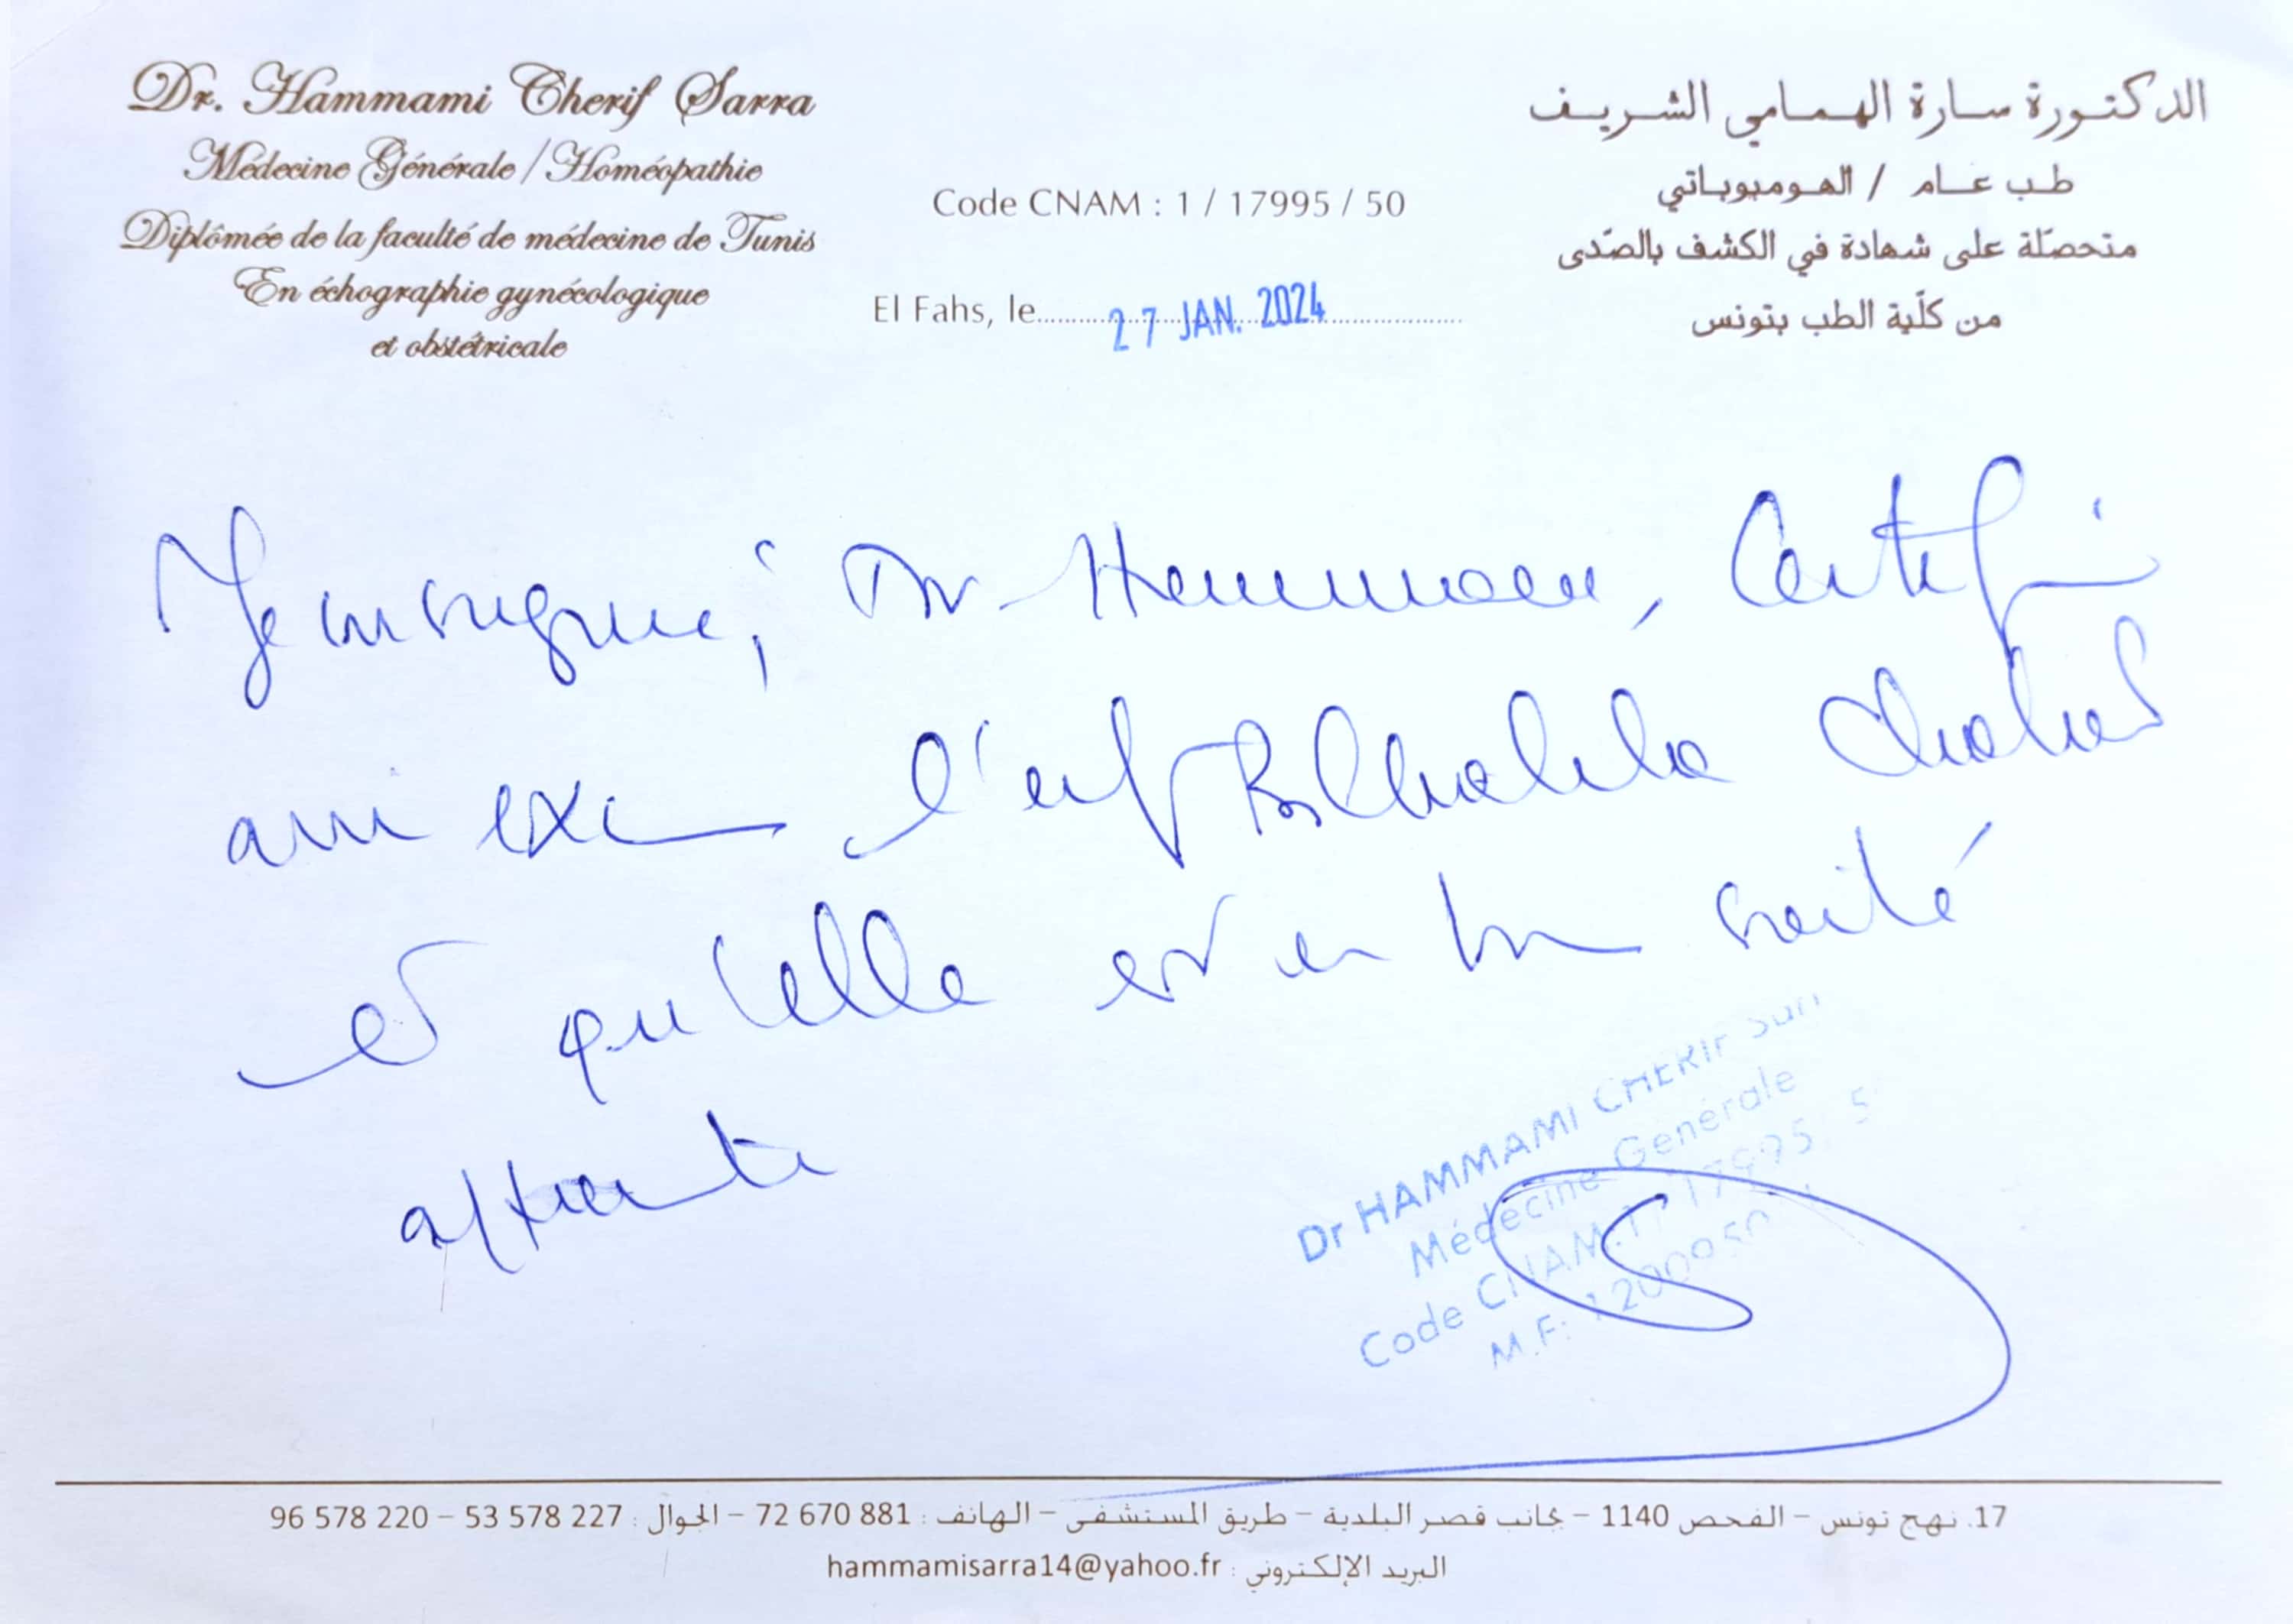 Dr. Hammami Cherif Sarra
Médecine Générale / Homéopathie
Diplômée de la faculté de médecine de Tunis
En échographie gynécologique
et obstétricale
Code CNAM : 1 / 17995 / 50
El Fahs, le 27 JAN. 2024
الدكتورة سارة الهمامي الشريف
طب عام / الهوميوباتي
متحصّلة على شهادة في الكشف بالصّدى
من كلّية الطب بتونس
Je soussigné, Dr Hammami, certifie
avoir l'enf
et qu'elle est en bonne santé
Dr HAMMAMI CHERIF
Médecine Générale
Code CNAM: 1 / 17995
M.F:
17. نهج تونس – الفحص 1140 – بجانب قصر البلدية – طريق المستشفى – الهاتف : 881 670 72 – الجوال : 227 578 53 – 220 578 96
البريد الإلكتروني : hammamisarra14@yahoo.fr